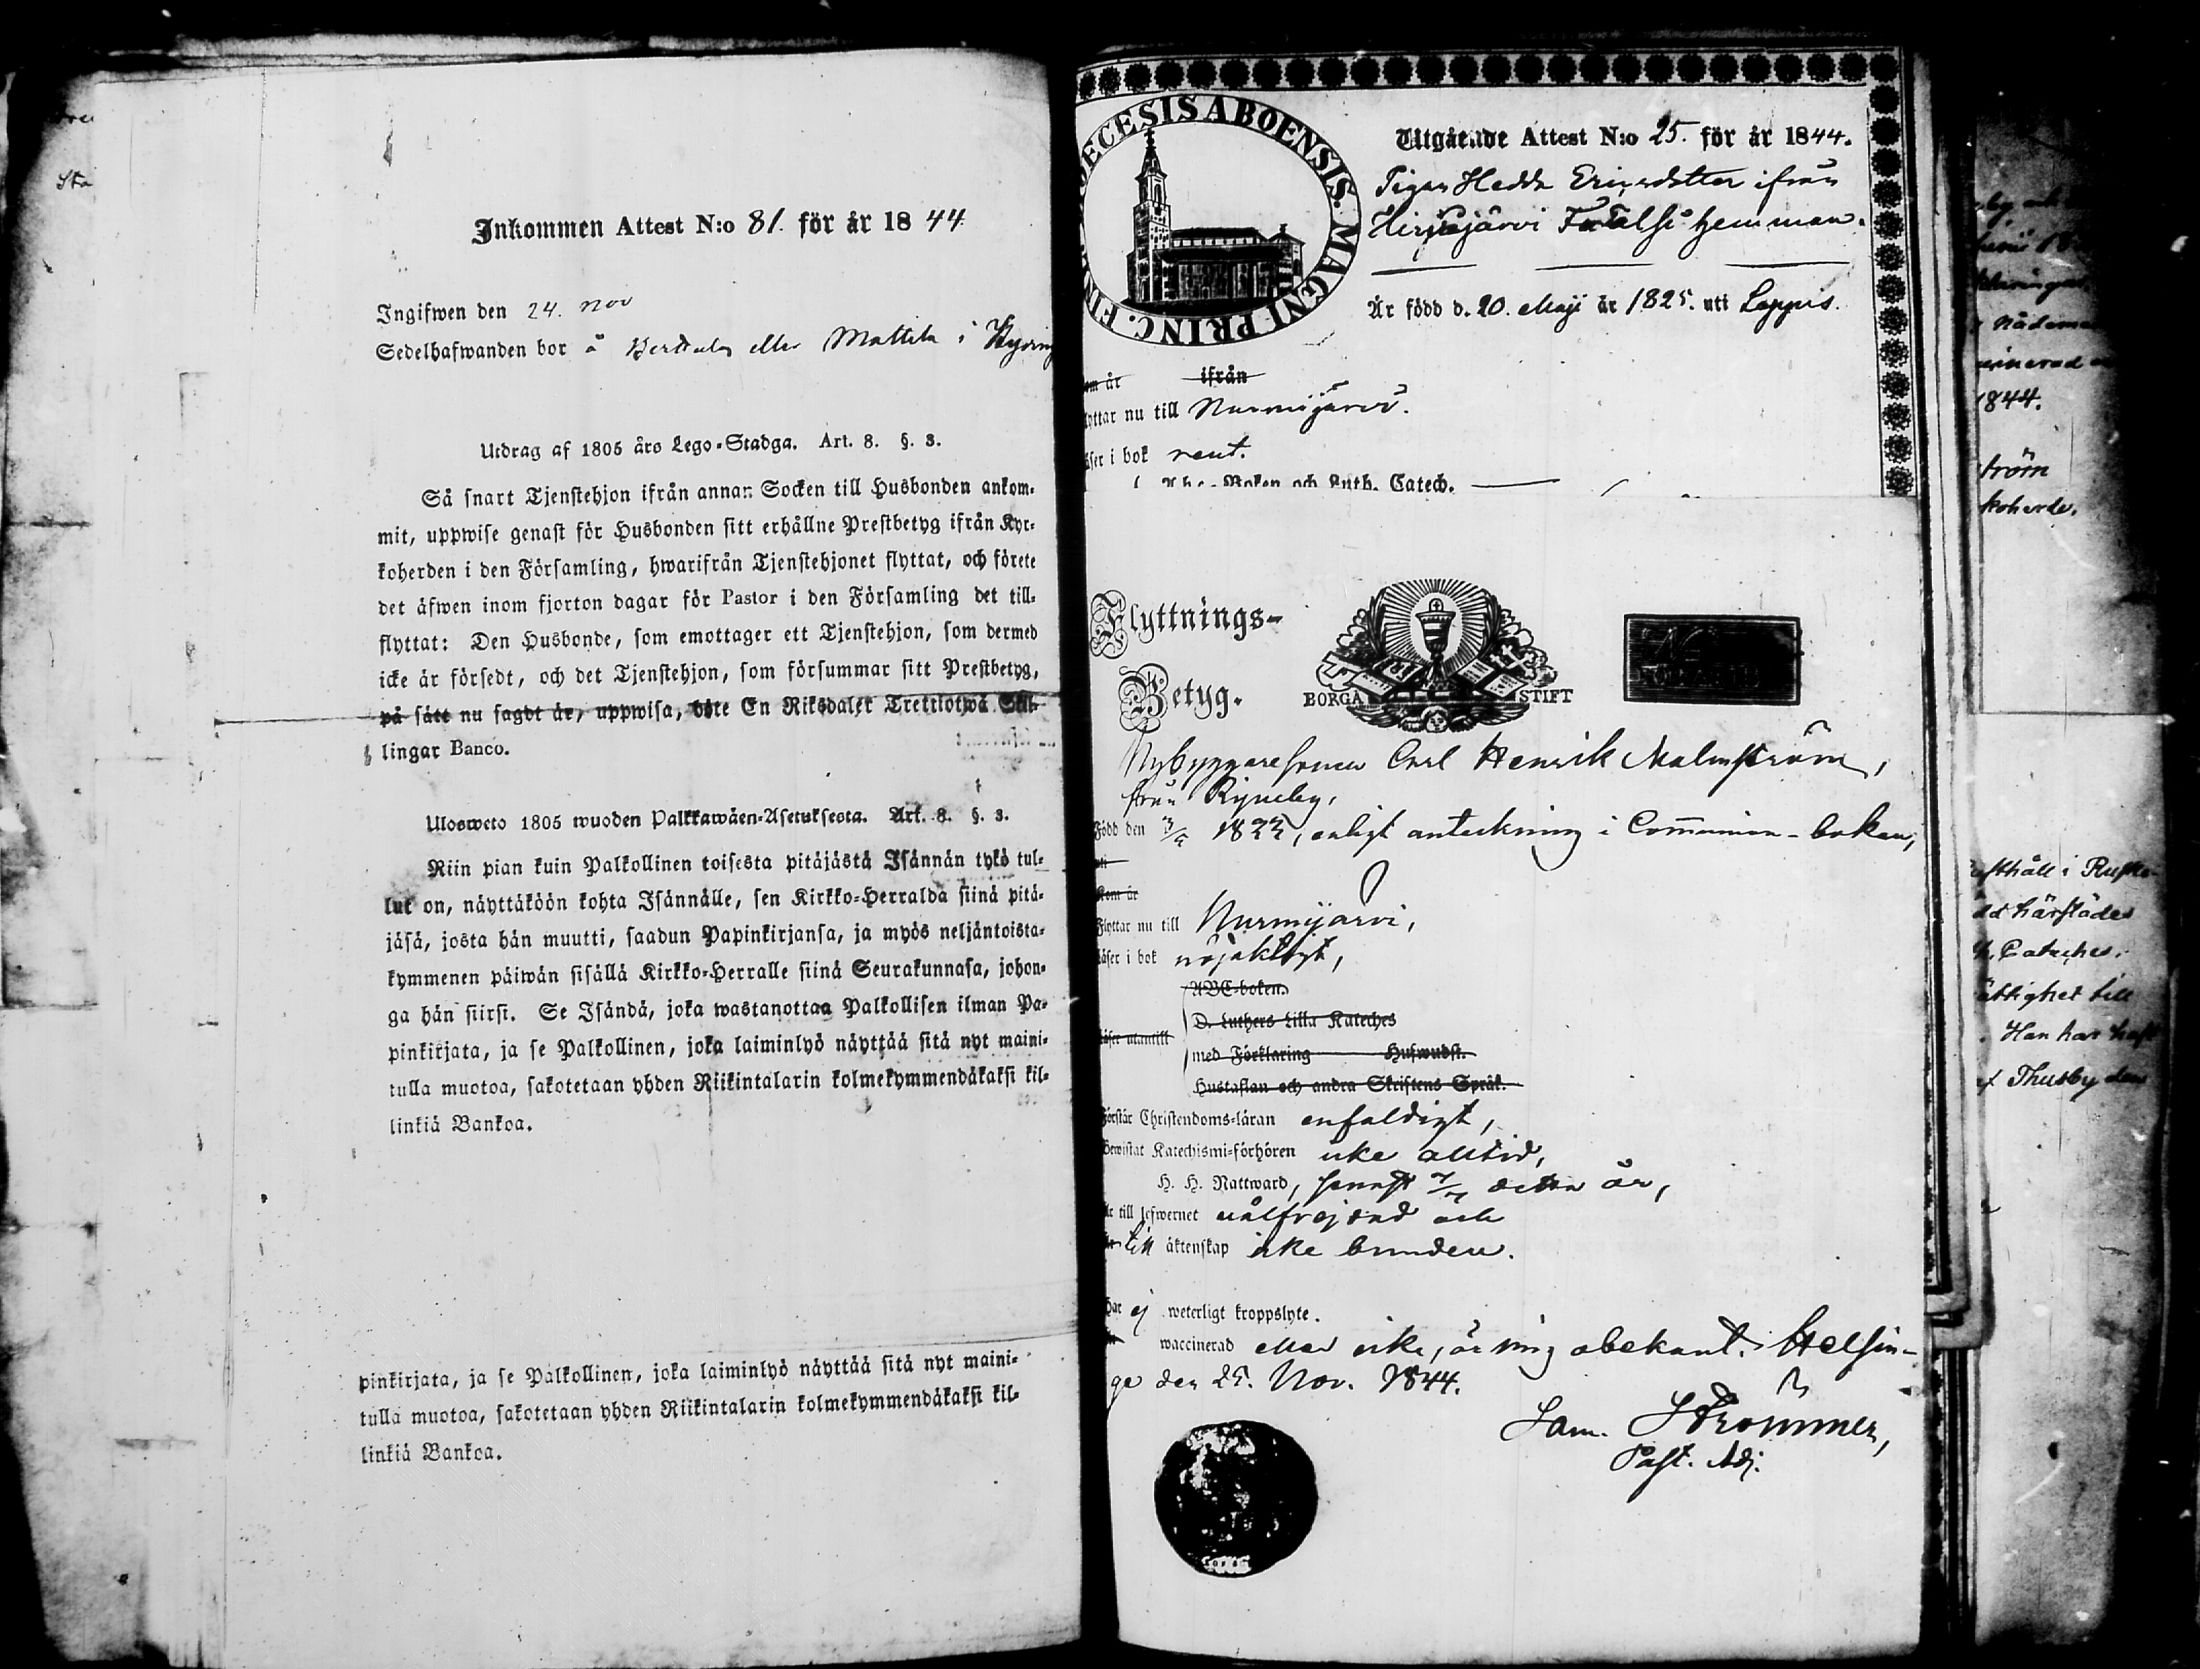 Inkommen Attest N:o 81. för år 1844
Ingifwen den 24. Nov
Sedelhafwanden bor å eller Mattila i
Utdrag af 1805 års Lego-Stadga. Art. 8. §. 3.
Så snart Tjenstehjon ifrån annan Socken till Husbonden ankom-
mit, uppwise genast för Husbonden sitt erhållne Prestbetyg ifrån Kyr-
koherden i den Församling, hwarifrån Tjenstehjonet flyttat, och förete
det äfwen inom fjorton dagar för Pastor i den Församling det till-
flyttat: Den Husbonde, som emottager ett Tjenstehjon, som dermed
icke är försedt, och det Tjenstehjon, som försummar sitt Prestbetyg,
på sätt nu sagdt är, uppwisa, böte En Riksdaler Trettiotwå Skil-
lingar Banco.
Ulosweto 1805 wuoden Palkkawäen-Asetuksesta. Art. 8. §. 3.
Niin pian kuin Palkollinen toisesta pitäjästä Isännän tykö tul-
lut on, näyttäköön kohta Isännälle, sen Kirkko-Herralda siinä pitä-
jäsä, josta hän muutti, saadun Papinkirjansa, ja myös neljäntoista-
kymmenen päiwän sisällä Kirkko-Herralle siinä Seurakunnasa, johon-
ga hän siirsi. Se Isändä, joka wastanottaa Palkollisen ilman Pa-
pinkirjata, ja se Palkollinen, joka laiminlyö näyttää sitä nyt maini-
tulla muotoa, sakotetaan yhden Riikintalarin kolmekymmendäkaksi kil-
linkiä Bankoa.
pinkirjata, ja se Palkollinen, joka laiminlyö näyttää sitä nyt maini-
tulla muotoa, sakotetaan yhden Riikintalarin kolmekymmendäkaksi kil-
linkiä Bankoa.
ECESIS ABOENSIS. MAGNI PRINC. FIN
Utgående Attest N:o 25. för år 1844.
Pigan Hedda Ericsdotter ifrån
Hirsjärvi Frälse hemman.
Är född d. 20. Maji år 1825. uti Loppis.
om är ifrån
lyttar nu till Nurmijärvi.
äser i bok rent.
Abc-Boken och Luth. Catech.
Flyttnings-
Betyg.
BORGÅ STIFT
Nybyggaresonen Carl Henrik Malmström,
från
Född den 1822, enligt anteckning i Communion-boken,
Kom är
Flyttar nu till Nurmijärvi,
Läser i bok nöjaktigt,
ABC-boken.
D. Luthers Lilla Kateches
Läser utantill
med Förklaring Hufwudst.
Hustaflan och andra Skriftens Språk.
Förstår Christendoms-läran enfaldigt,
Bewistat Katechismi-förhören icke alltid,
H. H. Nattward, senast detta år,
Är till lefwernet välfrejdad och
till äktenskap icke bunden.
Har ej weterligt kroppslyte.
waccinerad eller icke, är mig obekant. Helsin-
ge den 25. Nov. 1844.
Sam. Strömmer,
Past. Adj.
1844.
ström
koherde.
Cateches.
Han har haft
af Thusby den